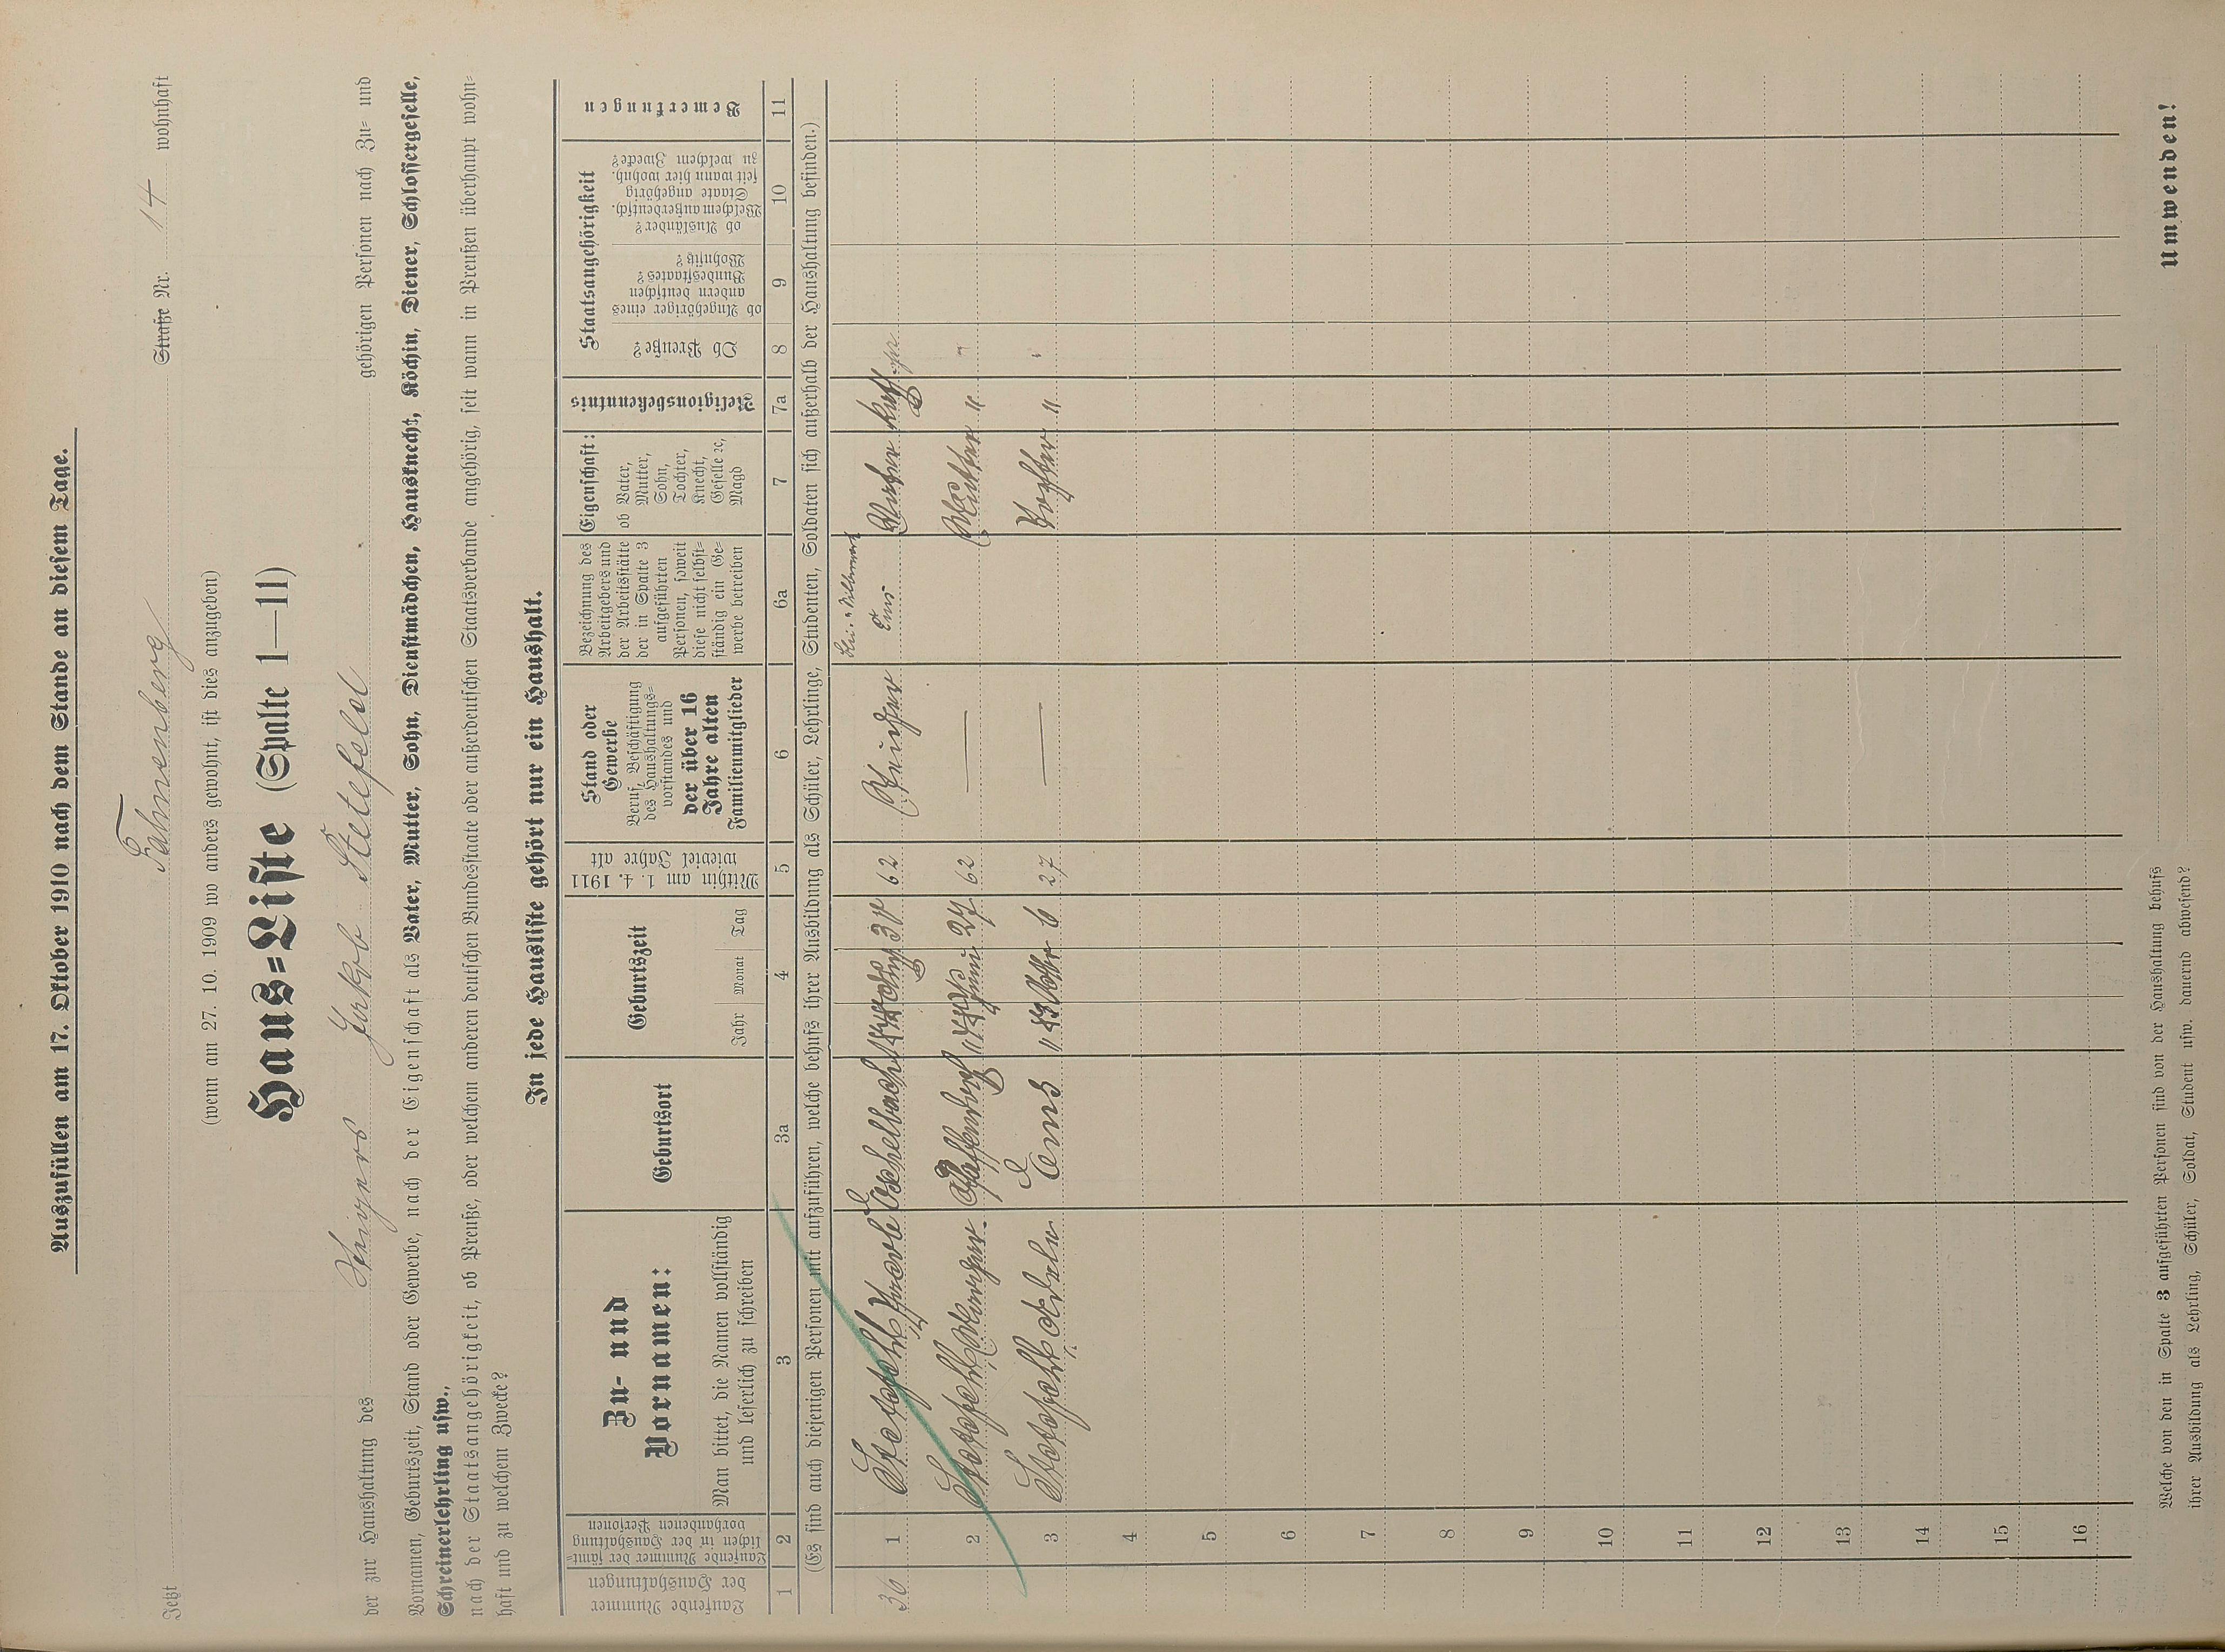 Auszufüllen am 17. Oktober 1910 nach dem Stande an diesem Tage.
Jetzt Fahnenberg Straße Nr. 14 wohnhaft
(wenn am 27. 10. 1909 wo anders gewohnt, ist dies anzugeben)
Haus=Liste (Spalte 1—11)
der zur Haushaltung des Jakob Stetefeld gehörigen Personen nach Zu= und
Vornamen, Geburtszeit, Stand oder Gewerbe, nach der Eigenschaft als Vater, Mutter, Sohn, Dienstmädchen, Hausknecht, Köchin, Diener, Schlossergeselle,
Schreinerlehrling usw.,
nach der Staatsangehörigkeit, ob Preuße, oder welchem anderen deutschen Bundesstaate oder außerdeutschen Staatsverbande angehörig, seit wann in Preußen überhaupt wohn=
haft und zu welchem Zwecke?
In jede Hausliste gehört nur ein Haushalt.
Laufende Nummer der Haushaltungen
Laufende Nummer der sämt=lichen in der Haushaltung vorhandenen Personen
Zu- und Vornamen:
Man bittet, die Namen vollständig und leserlich zu schreiben
Geburtsort
Geburtszeit
Jahr Monat Tag
Mithin am 1. 4. 1911 wieviel Jahre alt
Stand oder Gewerbe
Beruf, Beschäftigung des Haushaltungs=vorstandes und der über 16 Jahre alten Familienmitglieder
Bezeichnung des Arbeitgebers und der Arbeitsstätte der in Spalte 3 aufgeführten Personen, soweit diese nicht selbst=ständig ein Ge=werbe betreiben
Eigenschaft:
ob Vater, Mutter, Sohn, Tochter, Knecht, Geselle ec, Magd
Religionsbekenntnis
Staatsangehörigkeit
Ob Preuße?
ob Angehöriger eines andern deutschen Bundesstaates? Wohnsitz?
ob Ausländer? Welchem außerdeutsch. Staate angehörig seit wann hier wohnh. zu welchem Zwecke?
Bemerkungen
1 2 3 3a 4 5 6 6a 7 7a 8 9 10 11
(Es sind auch diejenigen Personen mit aufzuführen, welche behufs ihrer Ausbildung als Schüler, Lehrlinge, Studenten, Soldaten sich außerhalb der Haushaltung befinden.)
30 1 Stetefeld Jacob Eschelbach 30 62 Vater kath. ja
2 Stetefeld Pfaffendorf Juni 27 62 — Mutter "
3 Stetefeld Adele Ems " 83 6 27 — Tochter "
4
5
6
7
8
9
10
11
12
13
14
15
16
Welche von den in Spalte 3 aufgeführten Personen sind von der Haushaltung behufs
ihrer Ausbildung als Lehrling, Schüler, Soldat, Student usw. dauernd abwesend?
Umwenden!